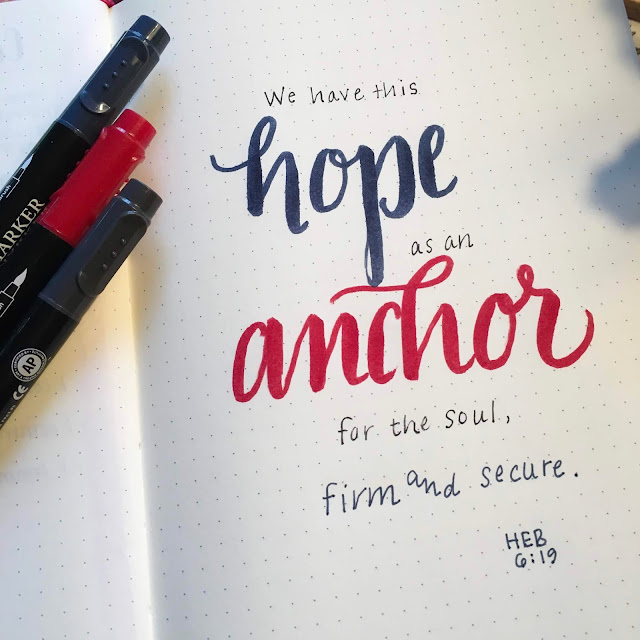 We have this
hope
as an
anchor
for the soul,
firm and secure.
HEB
6:19
MARKER
AP
CE